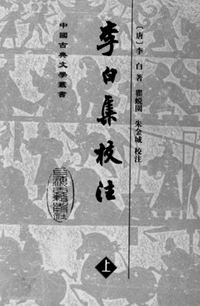 中國古典文學叢書
[唐]李 白 著
瞿蛻園 朱金城 校注
李白集校注
上